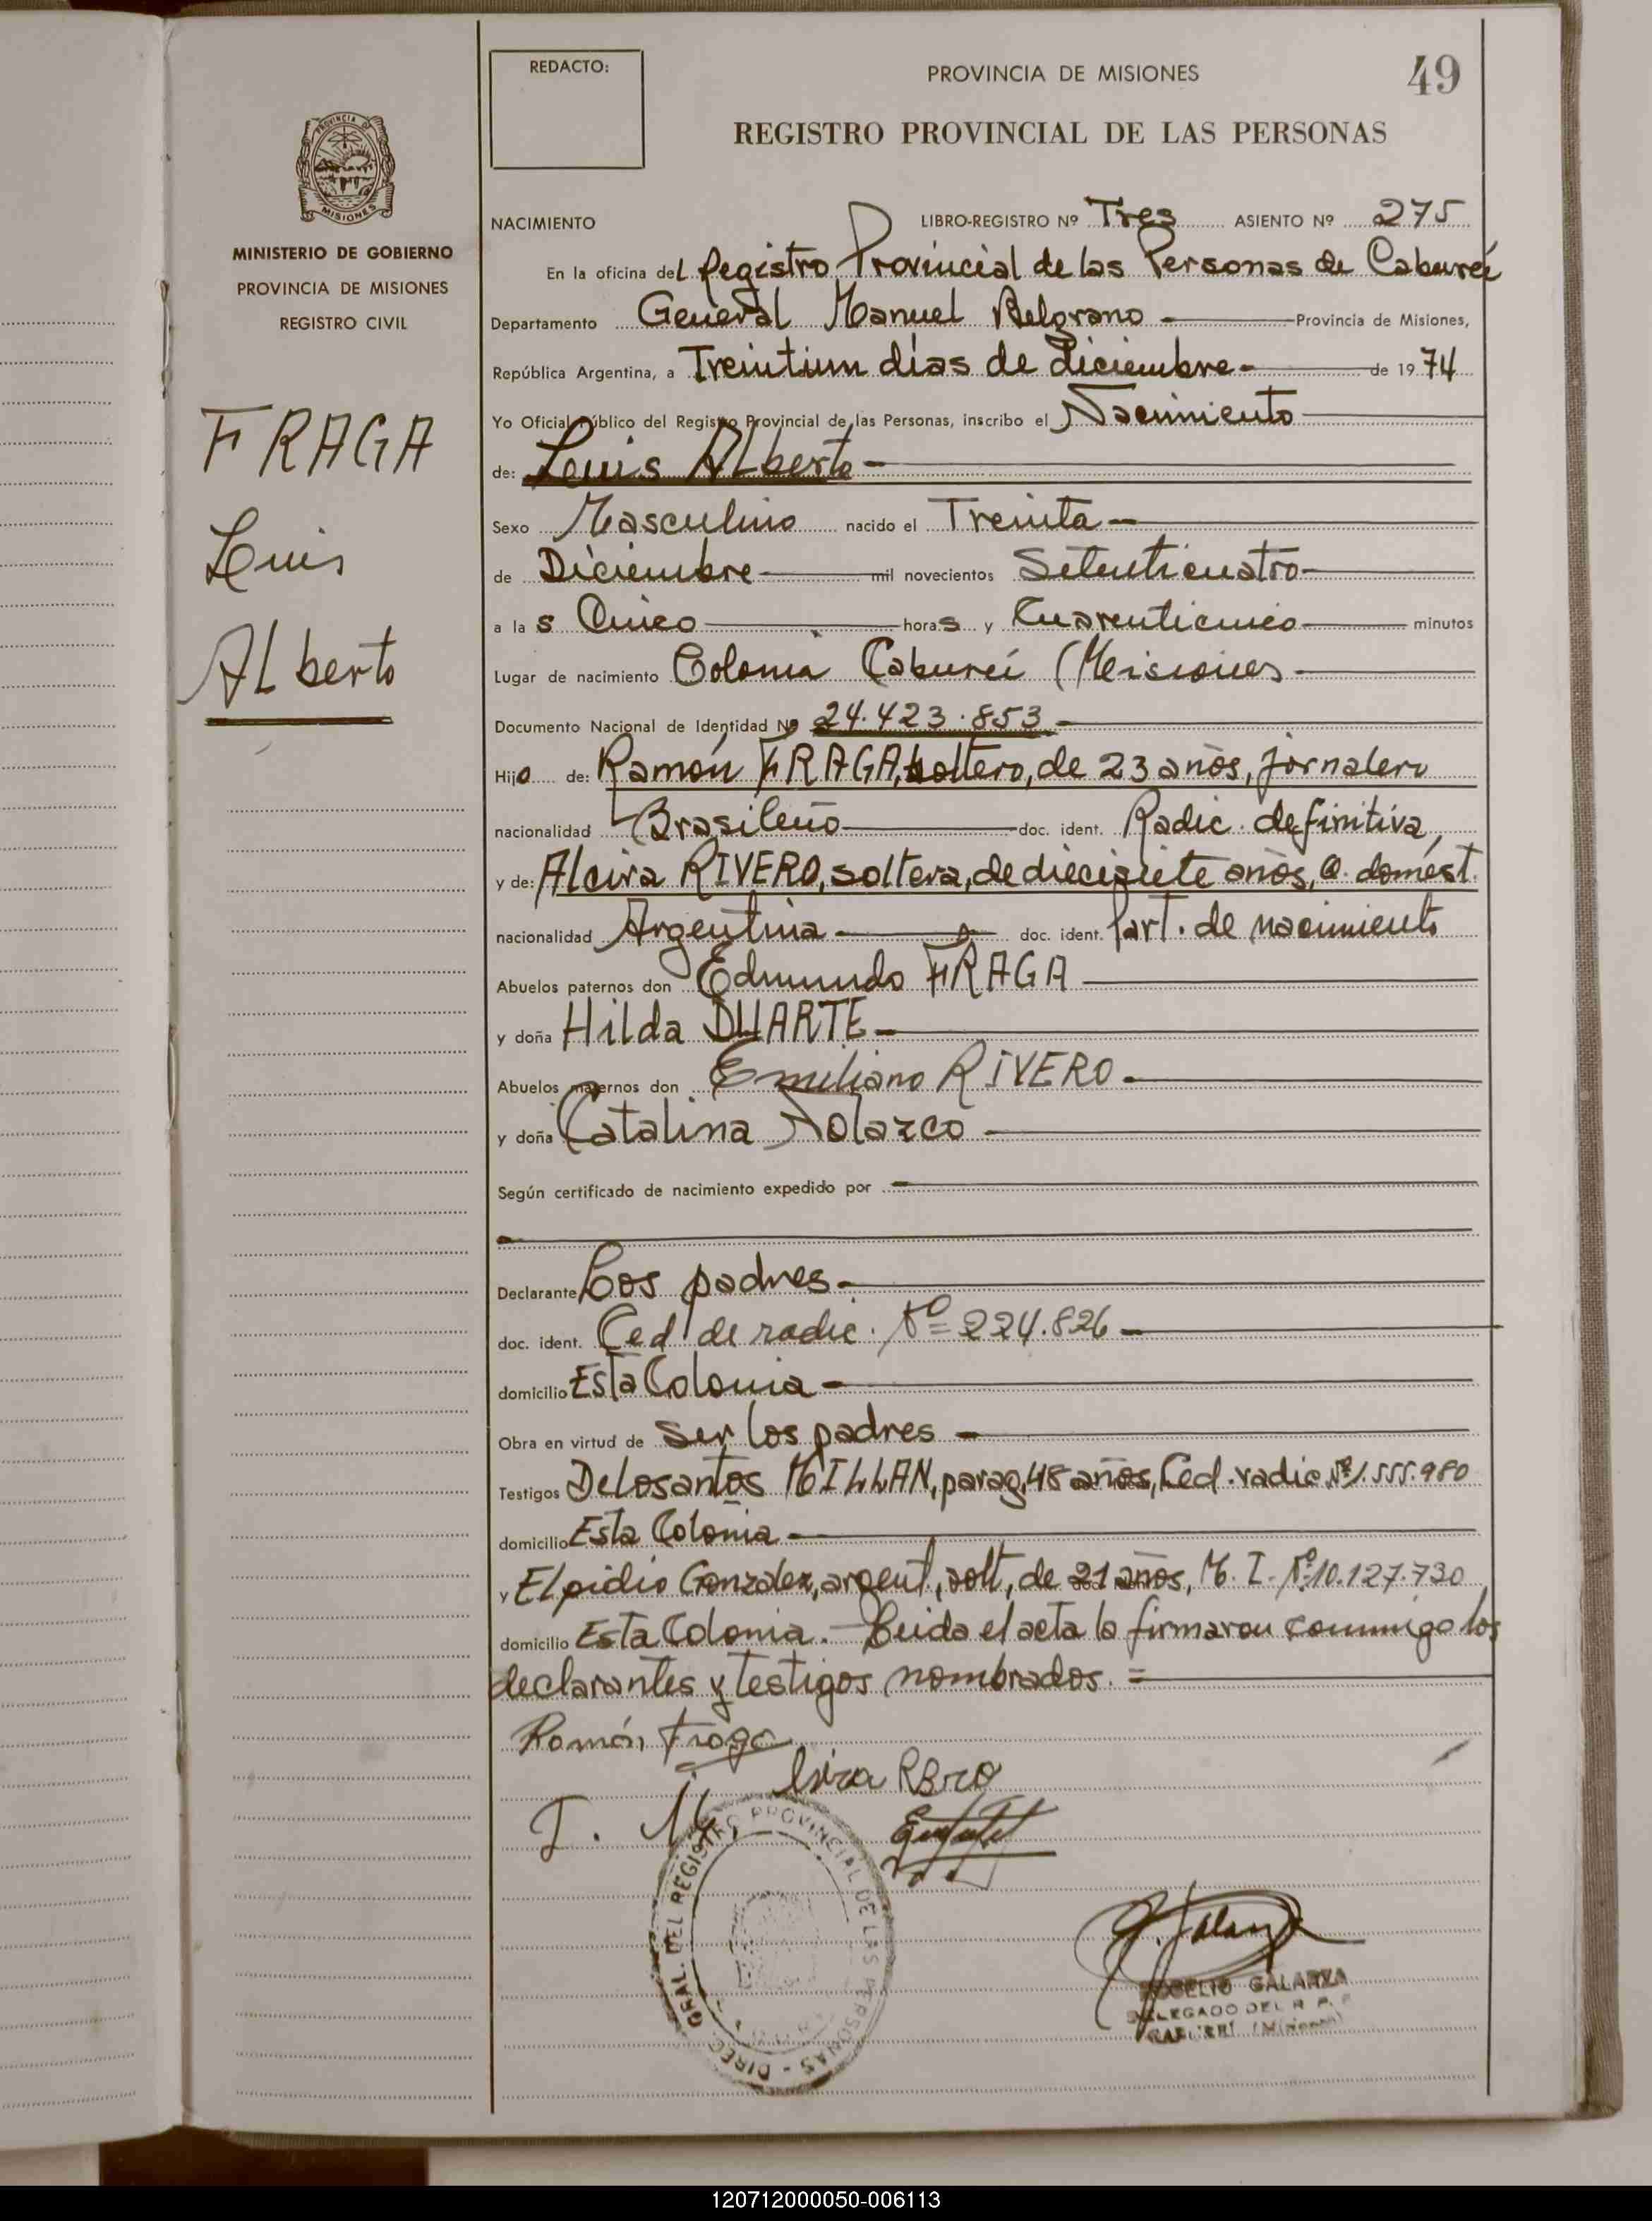 REDACTO:
PROVINCIA DE MISIONES
49
REGISTRO PROVINCIAL DE LAS PERSONAS
PROVINCIA DE
MISIONES
MINISTERIO DE GOBIERNO
PROVINCIA DE MISIONES
REGISTRO CIVIL
FRAGA
Luis
Alberto
NACIMIENTO LIBRO-REGISTRO Nº Tres ASIENTO Nº 275
En la oficina del Registro Provincial de las Personas de Cabureí
Departamento General Manuel Belgrano Provincia de Misiones,
República Argentina, a Treintiun días de diciembre de 1974
Yo Oficial Público del Registro Provincial de las Personas, inscribo el Nacimiento
de: Luis Alberto
Sexo Masculino nacido el Treinta
de Diciembre mil novecientos Setenticuatro
a las Cinco horas y Cuarenticinco minutos
Lugar de nacimiento Colonia Cabureí (Misiones
Documento Nacional de Identidad Nº 24.423.853
Hijo de: Ramón FRAGA, soltero, de 23 años, jornalero
nacionalidad Brasileño doc. ident. Radic. definitiva,
y de: Alcira RIVERO, soltera, de diecisiete años, Q. domést.
nacionalidad Argentina doc. ident. Part. de nacimiento
Abuelos paternos don Edmundo FRAGA
y doña Hilda DUARTE
Abuelos maternos don Emiliano RIVERO
y doña Catalina Nolazco
Según certificado de nacimiento expedido por
Declarante Los padres
doc. ident. Ced. de radic. Nº 224.826
domicilio Esta Colonia
Obra en virtud de Ser los padres
Testigos Delosantos MILLAN, parag, 48 años, Ced. radic. Nº 1.555.980
domicilio Esta Colonia
y Elpidio Gonzalez, argent, solt, de 21 años, M. I. Nº 10.127.730
domicilio Esta Colonia. Leida el acta la firmaron conmigo los
declarantes y testigos nombrados. =
Ramón Fraga
DIREC. GRAL. DEL REGISTRO PROVINCIAL DE LAS PERSONAS
ROGELIO GALARZA
DELEGADO DEL R. P. P
CABUREI (Misiones)
120712000050-006113